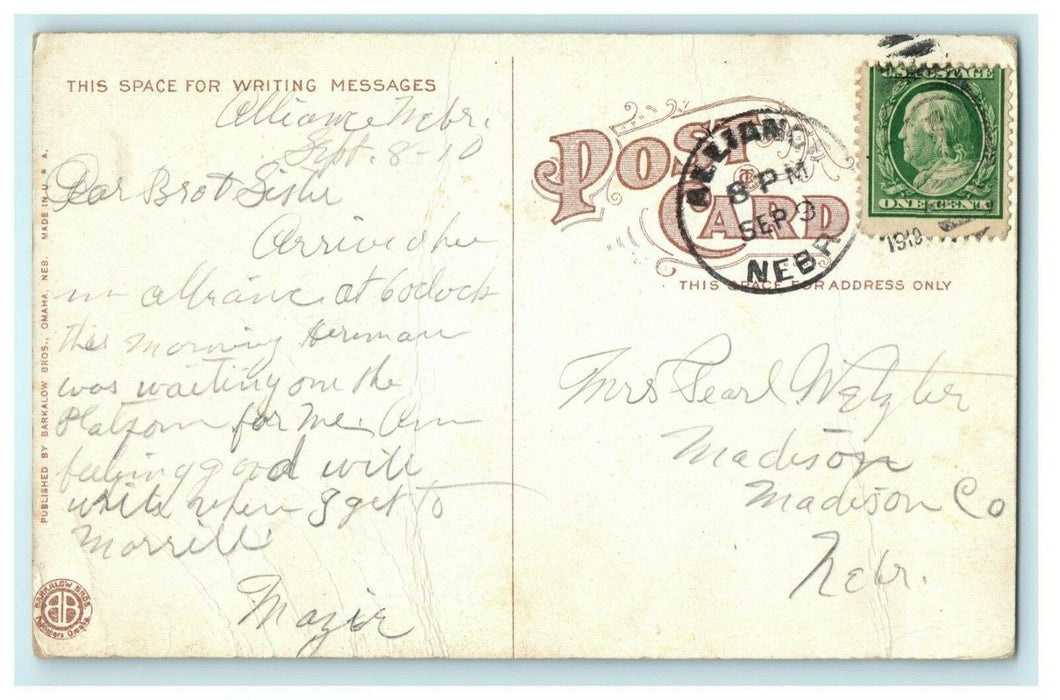 THIS SPACE FOR WRITING MESSAGES
Alliance Nebr.
Sept. 8-10
Dear Bro & Sister
Arrived here
in alliance at 6 oclock
this morning Herman
was waiting on the
Platform for me. Am
feeling good will
write when I get to
Morrill
Mazie
PUBLISHED BY BARKALOW BROS., OMAHA, NEB. MADE IN U. S. A.
BARKALOW BROS.
BB
Publishers Omaha
POST CARD
THIS SPACE FOR ADDRESS ONLY
ALLIANCE
8 PM
SEP 9
NEBR
1910
U.S. POSTAGE
ONE CENT
Mrs Pearl Wetzler
Madison
Madison Co
Nebr.